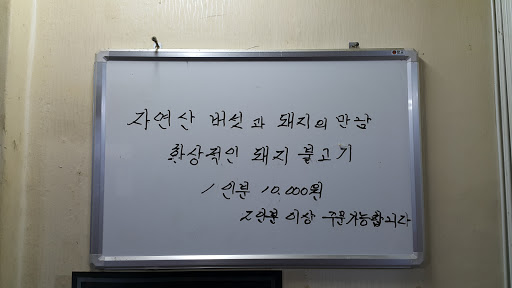 자연산 버섯과 돼지의 만남
환상적인 돼지 불고기
1인분 10.000원
2인분 이상 주문가능합니다